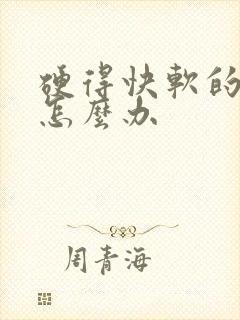 硬得快軟的
怎麼办
周青海